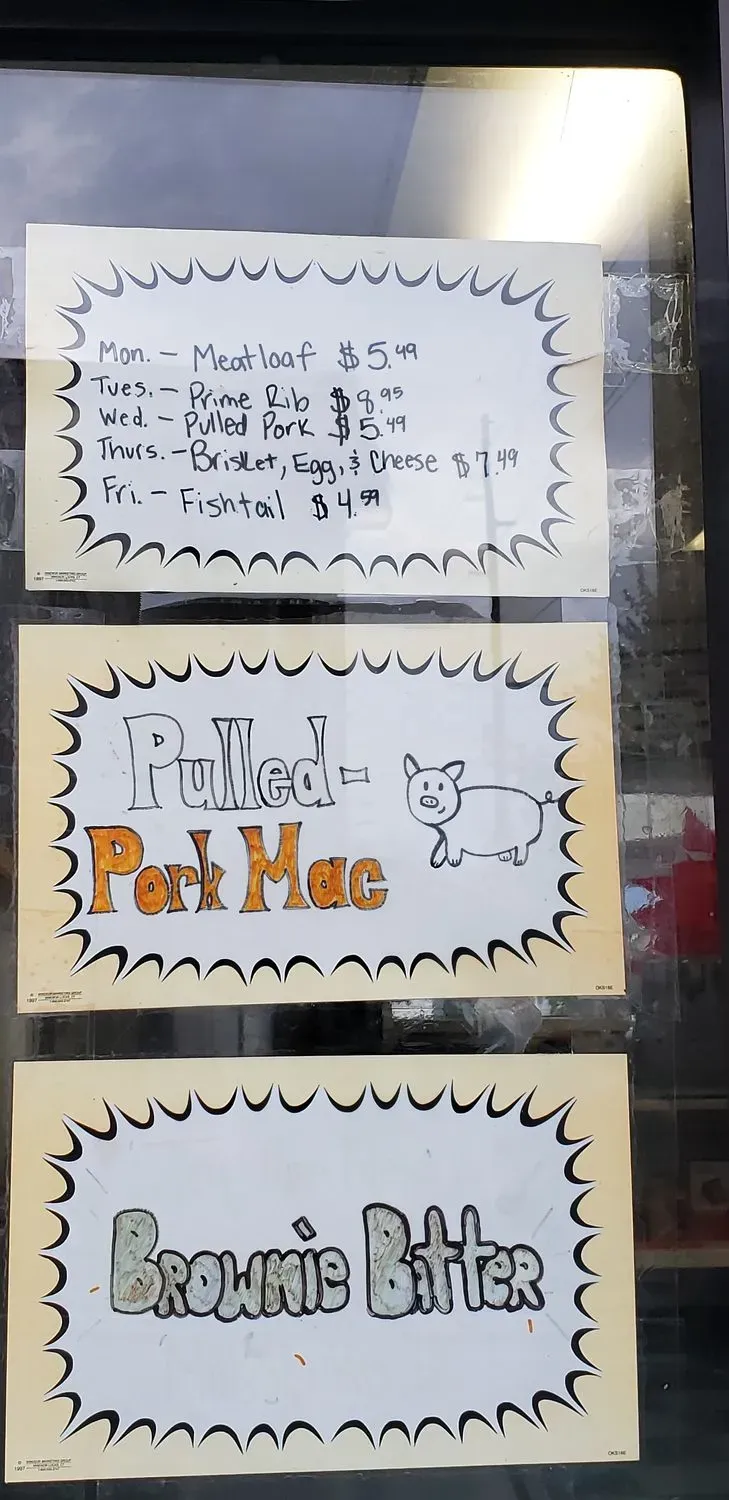 Mon. - Meatloaf $5.49
Tues. - Prime Rib $8.95
Wed. - Pulled Pork $5.49
Thurs. - Brisket, Egg, & Cheese $7.49
Fri. - Fishtail $4.59
1997
OKS18E
Pulled-
Pork Mac
1997
OKS18E
Brownie Batter
1997
OKS18E